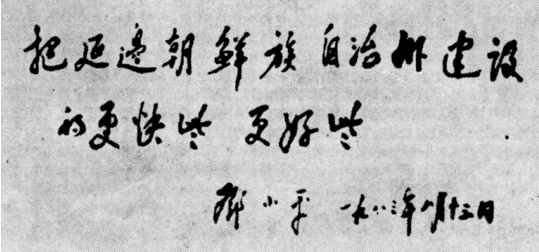 把延邊朝鲜族自治州建设
的更快些 更好些
邓小平 一九八三年八月十三日